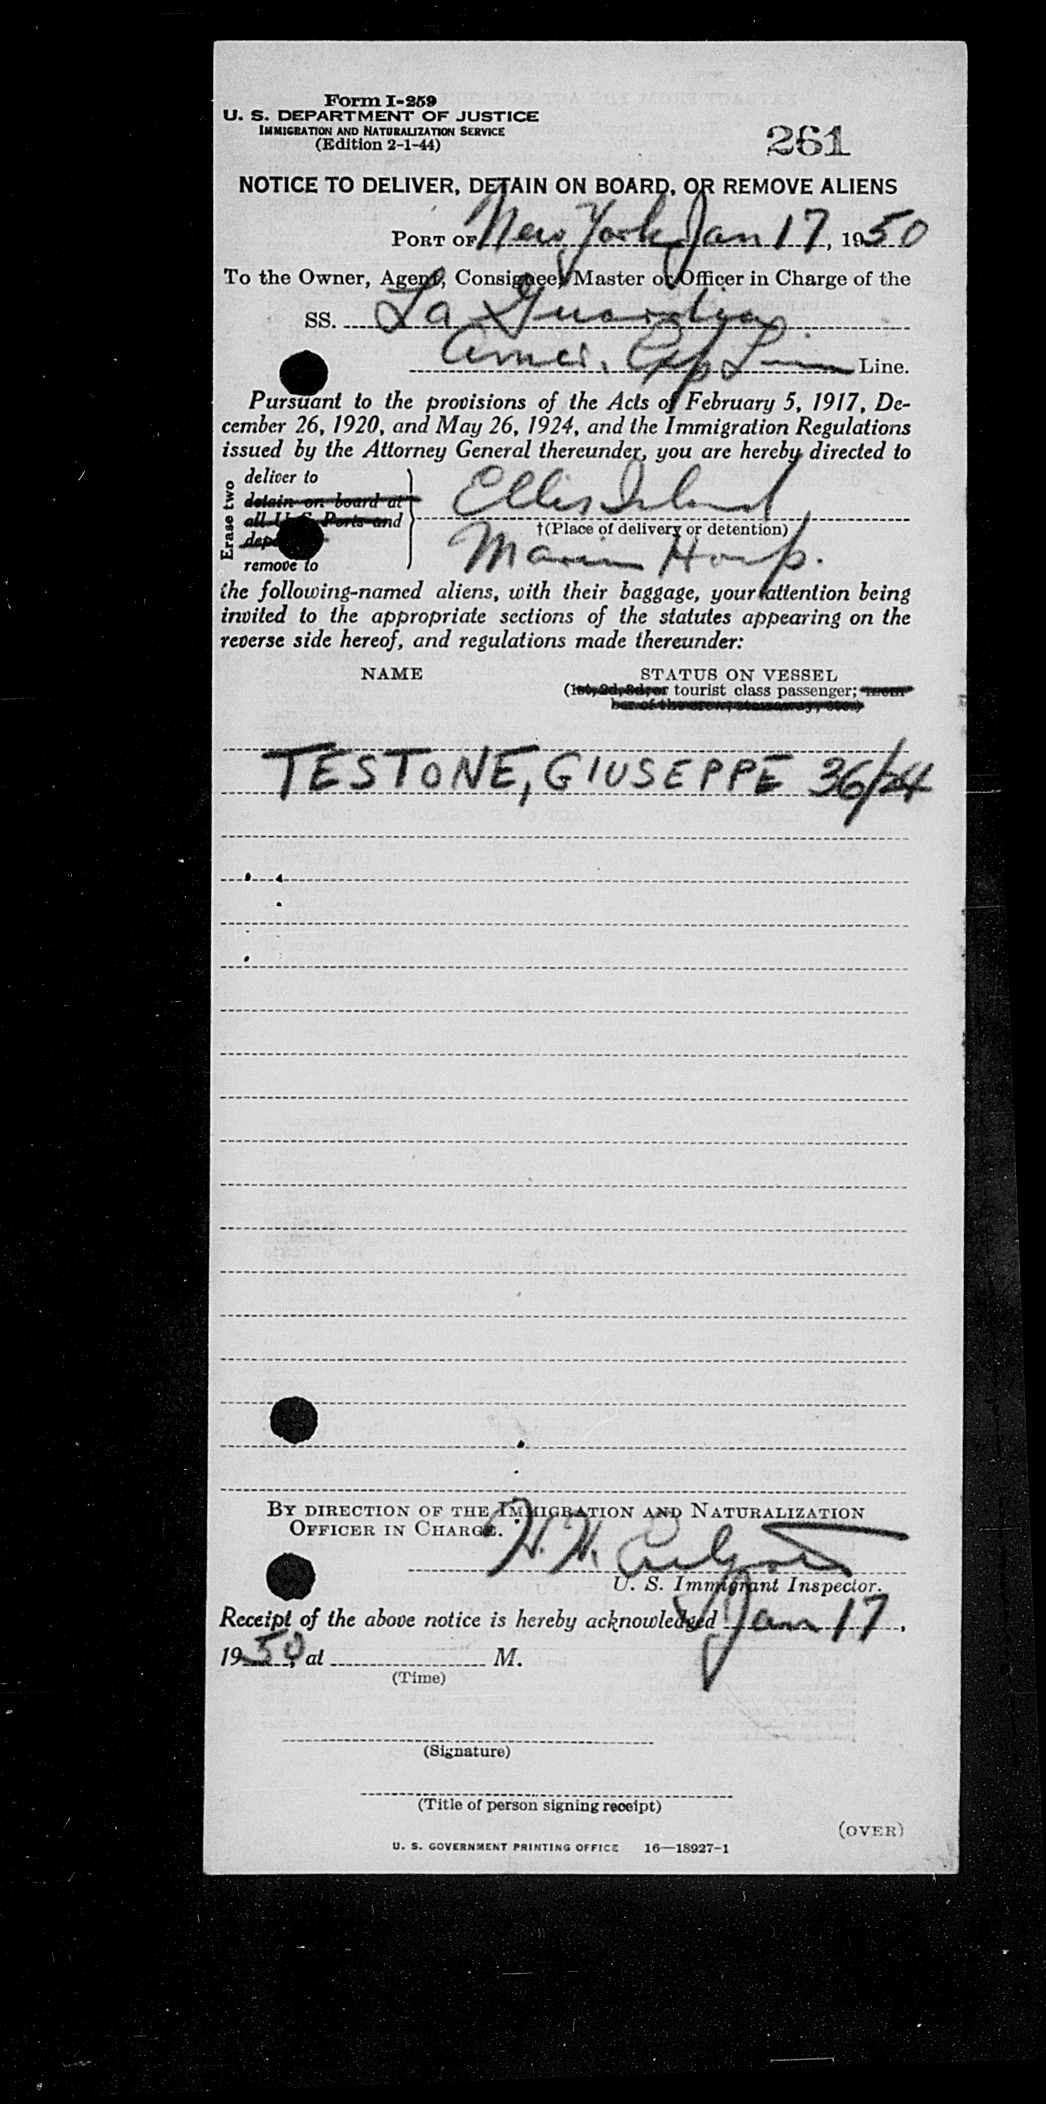 Form I-259
U. S. DEPARTMENT OF JUSTICE
IMMIGRATION AND NATURALIZATION SERVICE
(Edition 2-1-44)
261
NOTICE TO DELIVER, DETAIN ON BOARD, OR REMOVE ALIENS
PORT OF New York Jan 17, 1950
To the Owner, Agent, Consignee, Master or Officer in Charge of the
SS. La Guardia
Amer. Exp Line Line.
Pursuant to the provisions of the Acts of February 5, 1917, De-
cember 26, 1920, and May 26, 1924, and the Immigration Regulations
issued by the Attorney General thereunder, you are hereby directed to
Erase two
deliver to
detain on board at
all U S Ports and
remove to
Ellis Island
†(Place of delivery or detention)
Marine Hosp.
the following-named aliens, with their baggage, your attention being
invited to the appropriate sections of the statutes appearing on the
reverse side hereof, and regulations made thereunder:
NAME STATUS ON VESSEL
(1st, 2d, 3d, or tourist class passenger; mem-
ber of the crew, stowaway, etc.)
TESTONE, GIUSEPPE 36/24
BY DIRECTION OF THE IMMIGRATION AND NATURALIZATION
OFFICER IN CHARGE.
H. H.
U. S. Immigrant Inspector.
Receipt of the above notice is hereby acknowledged Jan 17,
1950, at M.
(Time)
(Signature)
(Title of person signing receipt)
(OVER)
U. S. GOVERNMENT PRINTING OFFICE 16—18927-1